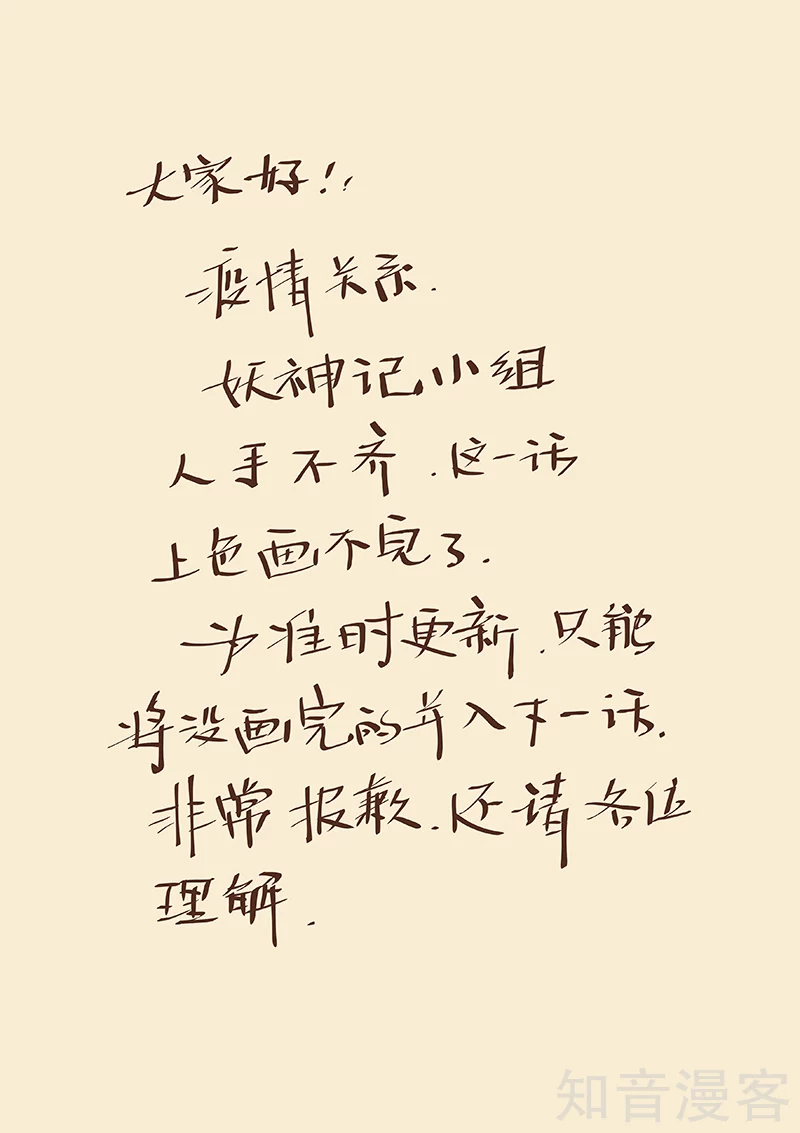 大家好!!
疫情关系.
妖神记小组
人手不齐.这一话
上色画不完了.
为准时更新.只能
将没画完的并入下一话.
非常报歉.还请各位
理解.
知音漫客